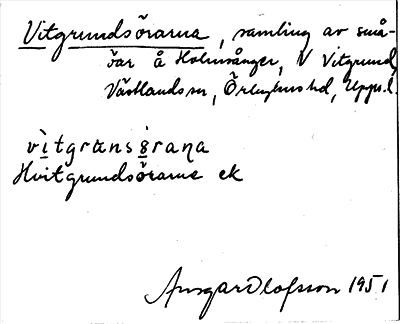 Vitgrundsörarna, samling av små-
öar å Holmsånger, V Vitgrund,
Västlands sn, Örbyhus hd, Upps. l.
vìtgrɯnsö́raṇa
Hvitgrundsörarne ek
Ansgar Olofsson 1951